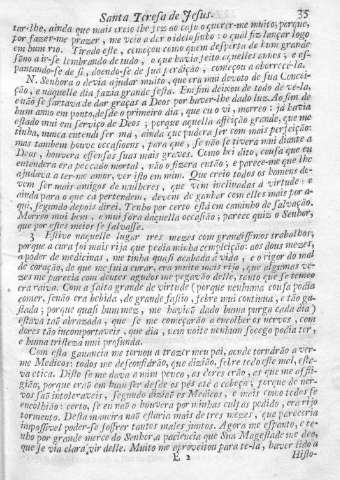 Santa Teresa de Jesus. 35
tar-lhe, ainda que mais creio lhe fez ao caso o querer-me muito; porque,
por fazer-me prazer, me veio a dar o idolosinho: o qual fiz lançar logo
em hum rio. Tirado este, começou como quem desperta de hum grande
sono a ir-se lembrando de tudo, o que havia feito aquelles annos; e es-
pantando-se de si, doendo-se de sua perdição, começou a aborrece-la.
N. Senhora o devia ajudar muito, que era mui devoto de sua Concei-
ção, e naquelle dia fazia grande festa. Em fim deixou de todo de ve-la,
e não se fartava de dar graças a Deos por haver-lhe dado luz. Ao fim de
hum anno em ponto, desde o primeiro dia, que eu o vi, morreo: já havia
estado mui em serviço de Deos; porque aquella affeição grande, que me
tinha, nunca entendi ser má, ainda que pudera ser com mais perfeição:
mas tambem houve occasioens, para que, se não se tivera mui diante a
Deos, houvera offensas suas mais graves. Como hei dito, cousa que eu
entendera era peccado mortal, não o fizera então; e parece-me que lhe
ajudava a ter-me amor, ver isto em mim. Que creio todos os homens de-
vem ser mais amigos de mulheres, que vem inclinadas á virtude: e
ainda para o que cá pertendem, devem de ganhar com elles mais por a-
qui, segundo depois direi. Tenho por certo está em caminho de salvação.
Morreo mui bem, e mui fóra daquella occasião; parece quiz o Senhor,
que por estes meios se salvasse.
3 Estive naquelle lugar tres mezes com grandissimos trabalhos,
porque a cura foi mais rija que pedia minha compleição: aos dous mezes,
a poder de medicinas, me tinha quasi acabada a vida, e o rigor do mal
de coração, de que me fui a curar, era muito mais rijo, que algumas ve-
zes me parecia com dentes agudos me pegavão delle, tanto que se temeo
era raiva. Com a falta grande de virtude (porque nenhuma cousa podia
comer, senão era bebida, de grande fastio, febre mui continua, e tão ga-
stada; porque quasi hum mez, me havião dado huma purga cada dia)
estava tão abrazada, que se me começarão a encolher os nervos, com
dores tão incomportaveis, que dia, nem noite nenhum socego podia ter,
e huma tristeza mui profunda.
Com esta ganancia me tornou a trazer meu pai, aonde tornárão a ver-
me Medicos: todos me desconfiárão, que dizião, sobre todo este mal, este-
va etica. Disto se me dava a mim pouco, as dores erão, as que me affli-
gião, porque erão em hum ser desde os pés até a cabeça; porque de ner-
vos são intoleraveis, segundo dizião os Medicos, e mais como todos se
encolhião: certo, se eu não o houvera por minhas culpas pedido, era rijo
tormento. Desta maneira não estaria mais de tres mezes, que pareceria
impossivel poder-se soffrer tantos males juntos. Agora me espanto, e te-
nho por grande merce do Senhor, a paciencia que Sua Magestade me deo,
que se via clara vir delle. Muito me aproveitou para te-la, haver lido a
E 2 Histo-